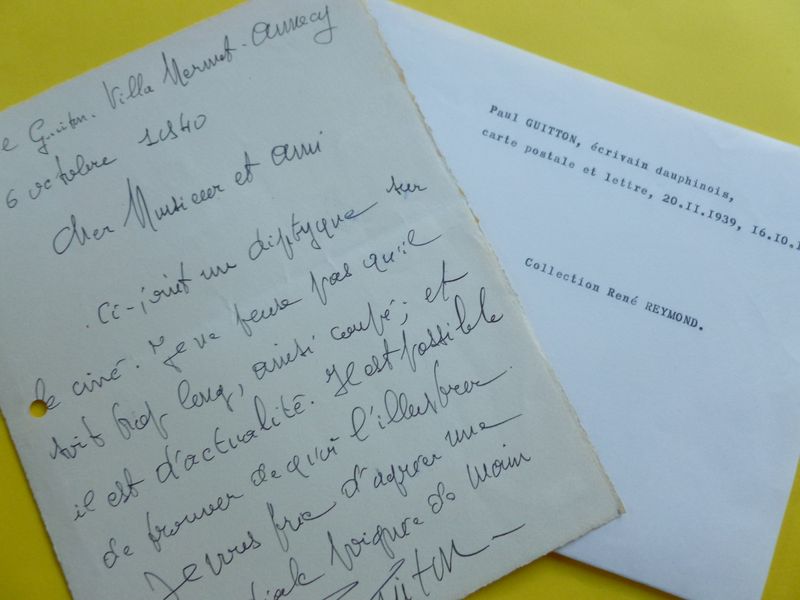 e Guiton. Villa Mermet. Annecy
6 octobre 1940
Cher Monsieur et ami
Ci-joint un diptyque sur
le ciné. Je ne pense pas qu'il
soit trop long, ainsi coupé; et
il est d'actualité. Il est possible
de trouver de quoi l'illustrer.
Je vous prie d'agréer une
diale poignée de main
Guiton
Paul GUITTON, écrivain dauphinois,
carte postale et lettre, 20.II.1939, I6.I0.I
Collection René REYMOND.